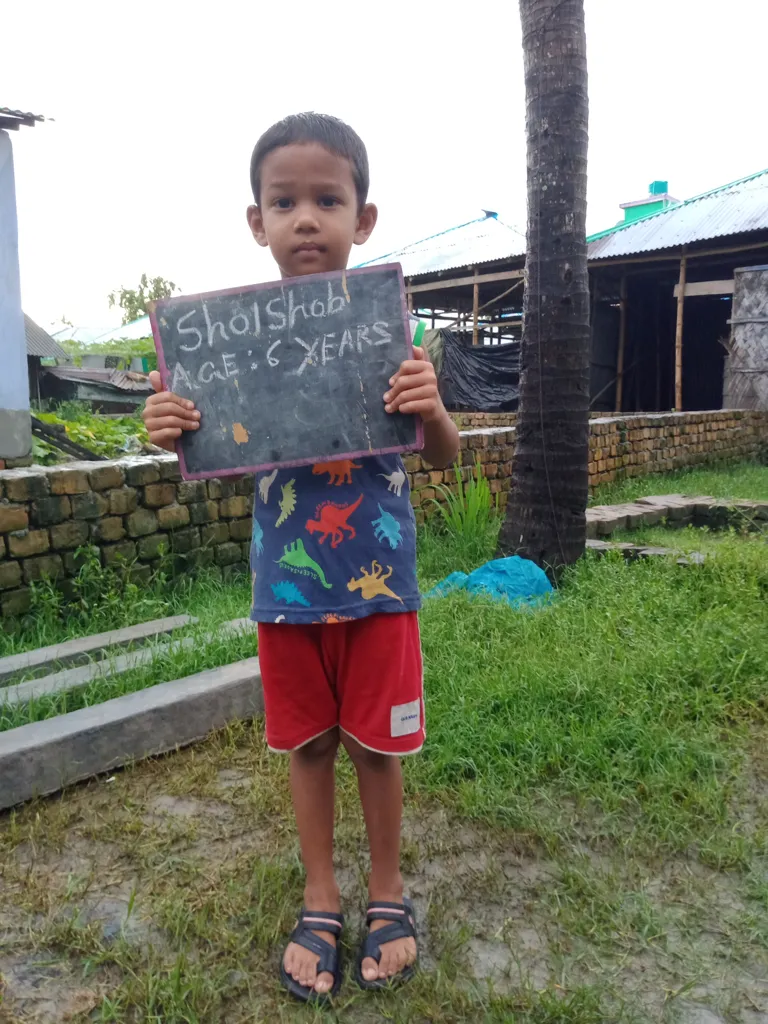 ShoIShob
AGE: 6 YEARS